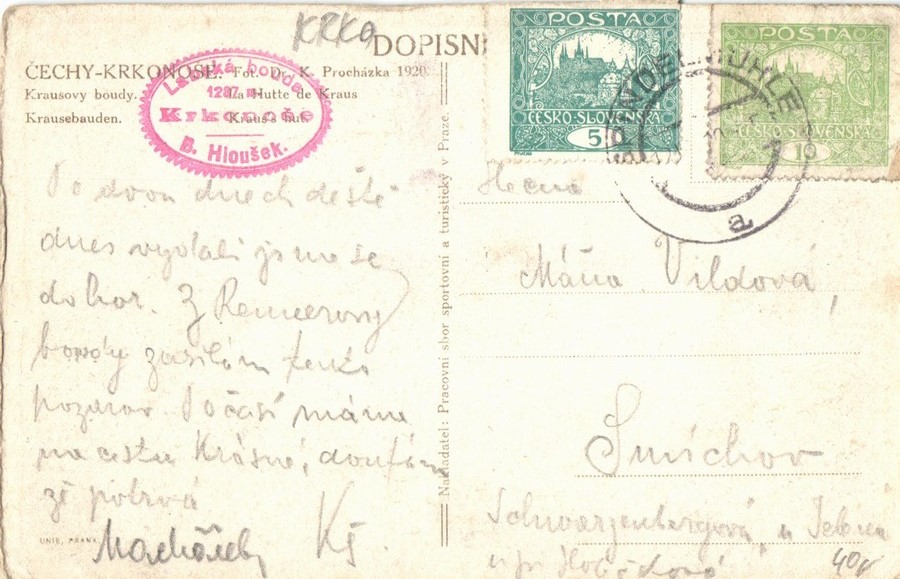 KRKo
DOPISN
ČECHY-KRKONOŠE. Fot. Dr. K. Procházka 1920.
Krausovy boudy. La Hutte de Kraus
Krausebauden. Kraus's hut.
Labská bouda
1287 m.
Krkonoše
B. Hloušek.
POSTA
ČESKO-SLOVENSKA
5
POSTA
ČESKO-SLOVENSKA
10
SPINDELMÜHLE
a
Po dvou dnech deště
dnes vydali jsme se
do hor. Z Rennerovy
boudy zasílám tento
pozdrav. Počasí máme
na cestu krásné, doufám
že potrvá
Kš.
UNIE, PRAHA
Nakladatel: Pracovní sbor sportovní a turistický v Praze.
Slečna
Máňa Vildová,
Smíchov
Schwarzenbergova
40,-